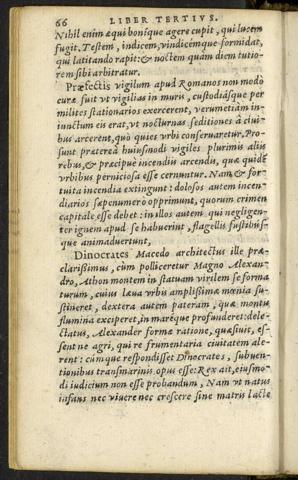 66 LIBER TERTIVS.
Nihil enim æqui bonique agere cupit, qui lucem
fugit. Testem, indicem, vindicémque formidat,
qui latitando rapit: & noctem quàm diem tutio-
rem sibi arbitratur.
Præfectis vigilum apud Romanos non modò
curæ fuit vt vigilias in muris, custodiásque per
milites stationarios exercerent, verumetiam in-
iunctum eis erat, vt nocturnas seditiones à ciui-
bus arcerent, quò quies vrbi conseruaretur. Pro-
sunt prætereà huiusmodi vigiles plurimis aliis
rebus, & præcipuè incendiis arcendis, quæ quidē
vrbibus perniciosa esse cernuntur. Nam & for-
tuita incendia extingunt: dolosos autem incen-
diarios sæpenumero opprimunt, quorum crimen
capitale esse debet: in illos autem qui negligen-
ter ignem apud se habuerint, flagellis fustibús-
que animaduertunt,
Dinocrates Macedo architectus ille præ-
clarissimus, cùm polliceretur Magno Alexan-
dro, Athon montem in statuam virilem se forma
turum, cuius læua vrbi amplissimæ mœnia su-
stineret, dextera autem pateram, quæ montis
flumina exciperet, in maréque profunderet: dele-
ctatus, Alexander formæ ratione, quæsiuit, es-
sent ne agri, qui re frumentaria ciuitatem ale-
rent: cúmque respondisset Dinocrates, subuen-
tionibus transmarinis opus esse: Rex ait, eiusmo-
di iudicium non esse probandum, Nam vt natus
infans nec viuere nec crescere sine matris lacte